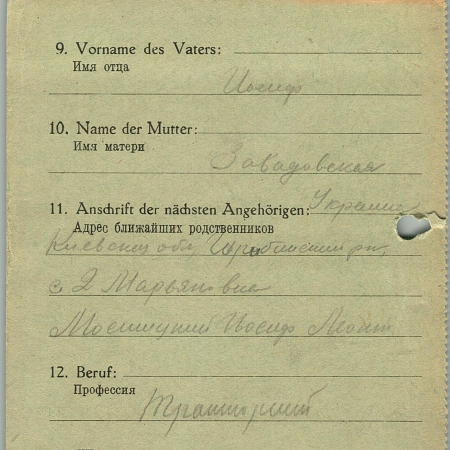 9. Vorname des Vaters:
Имя отца
Иосиф
10. Name der Mutter:
Имя матери
Завадовская
11. Anschrift der nächsten Angehörigen: Украина
Адрес ближайших родственников
обл,
Марьяновка
Иосиф
12. Beruf:
Профессия